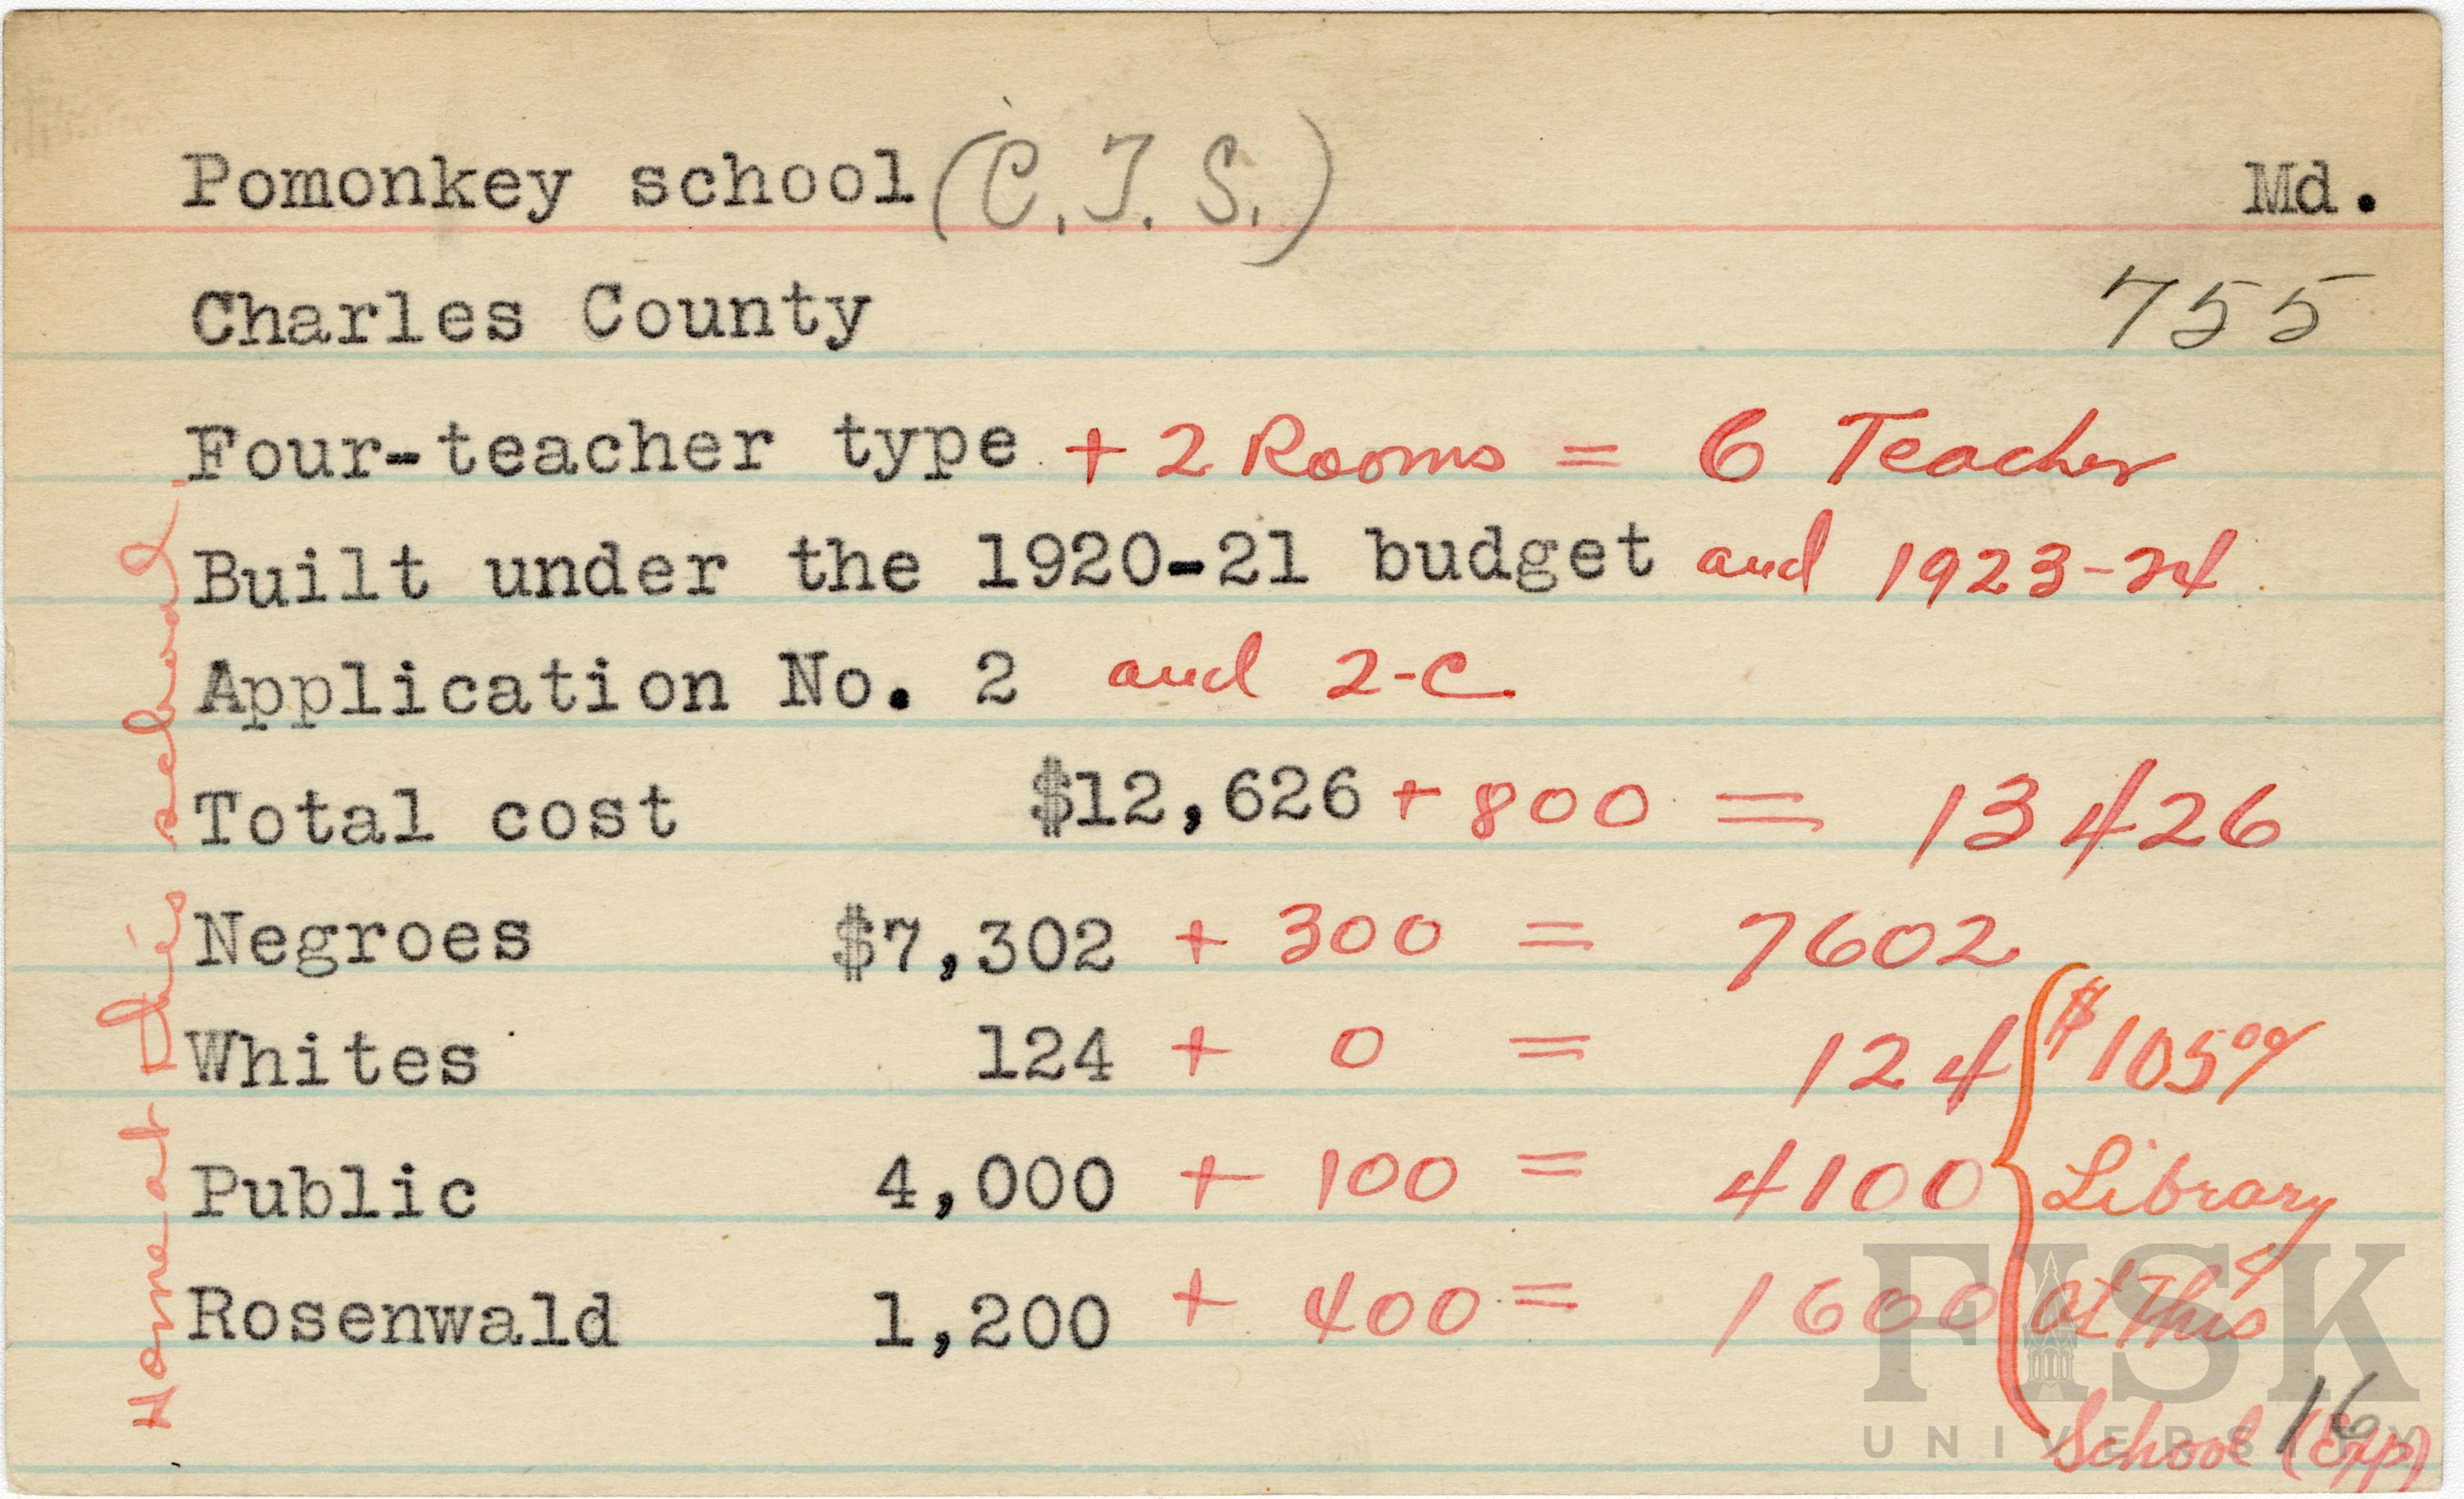 Pomonkey school (C.T.S.) Md.
Charles County 755
Four-teacher type + 2 Rooms = 6 Teacher
Built under the 1920-21 budget and 1923-24
Application No. 2 and 2-C
Total cost $12,626 + 800 = 13426
Negroes $7,302 + 300 = 7602
Whites 124 + 0 = 124
Public 4,000 + 100 = 4100
Rosenwald 1,200 + 400 = 1600
$105 00
Library
at this
School (Exp)
16
Home at this school.
FISK
UNIVERSITY